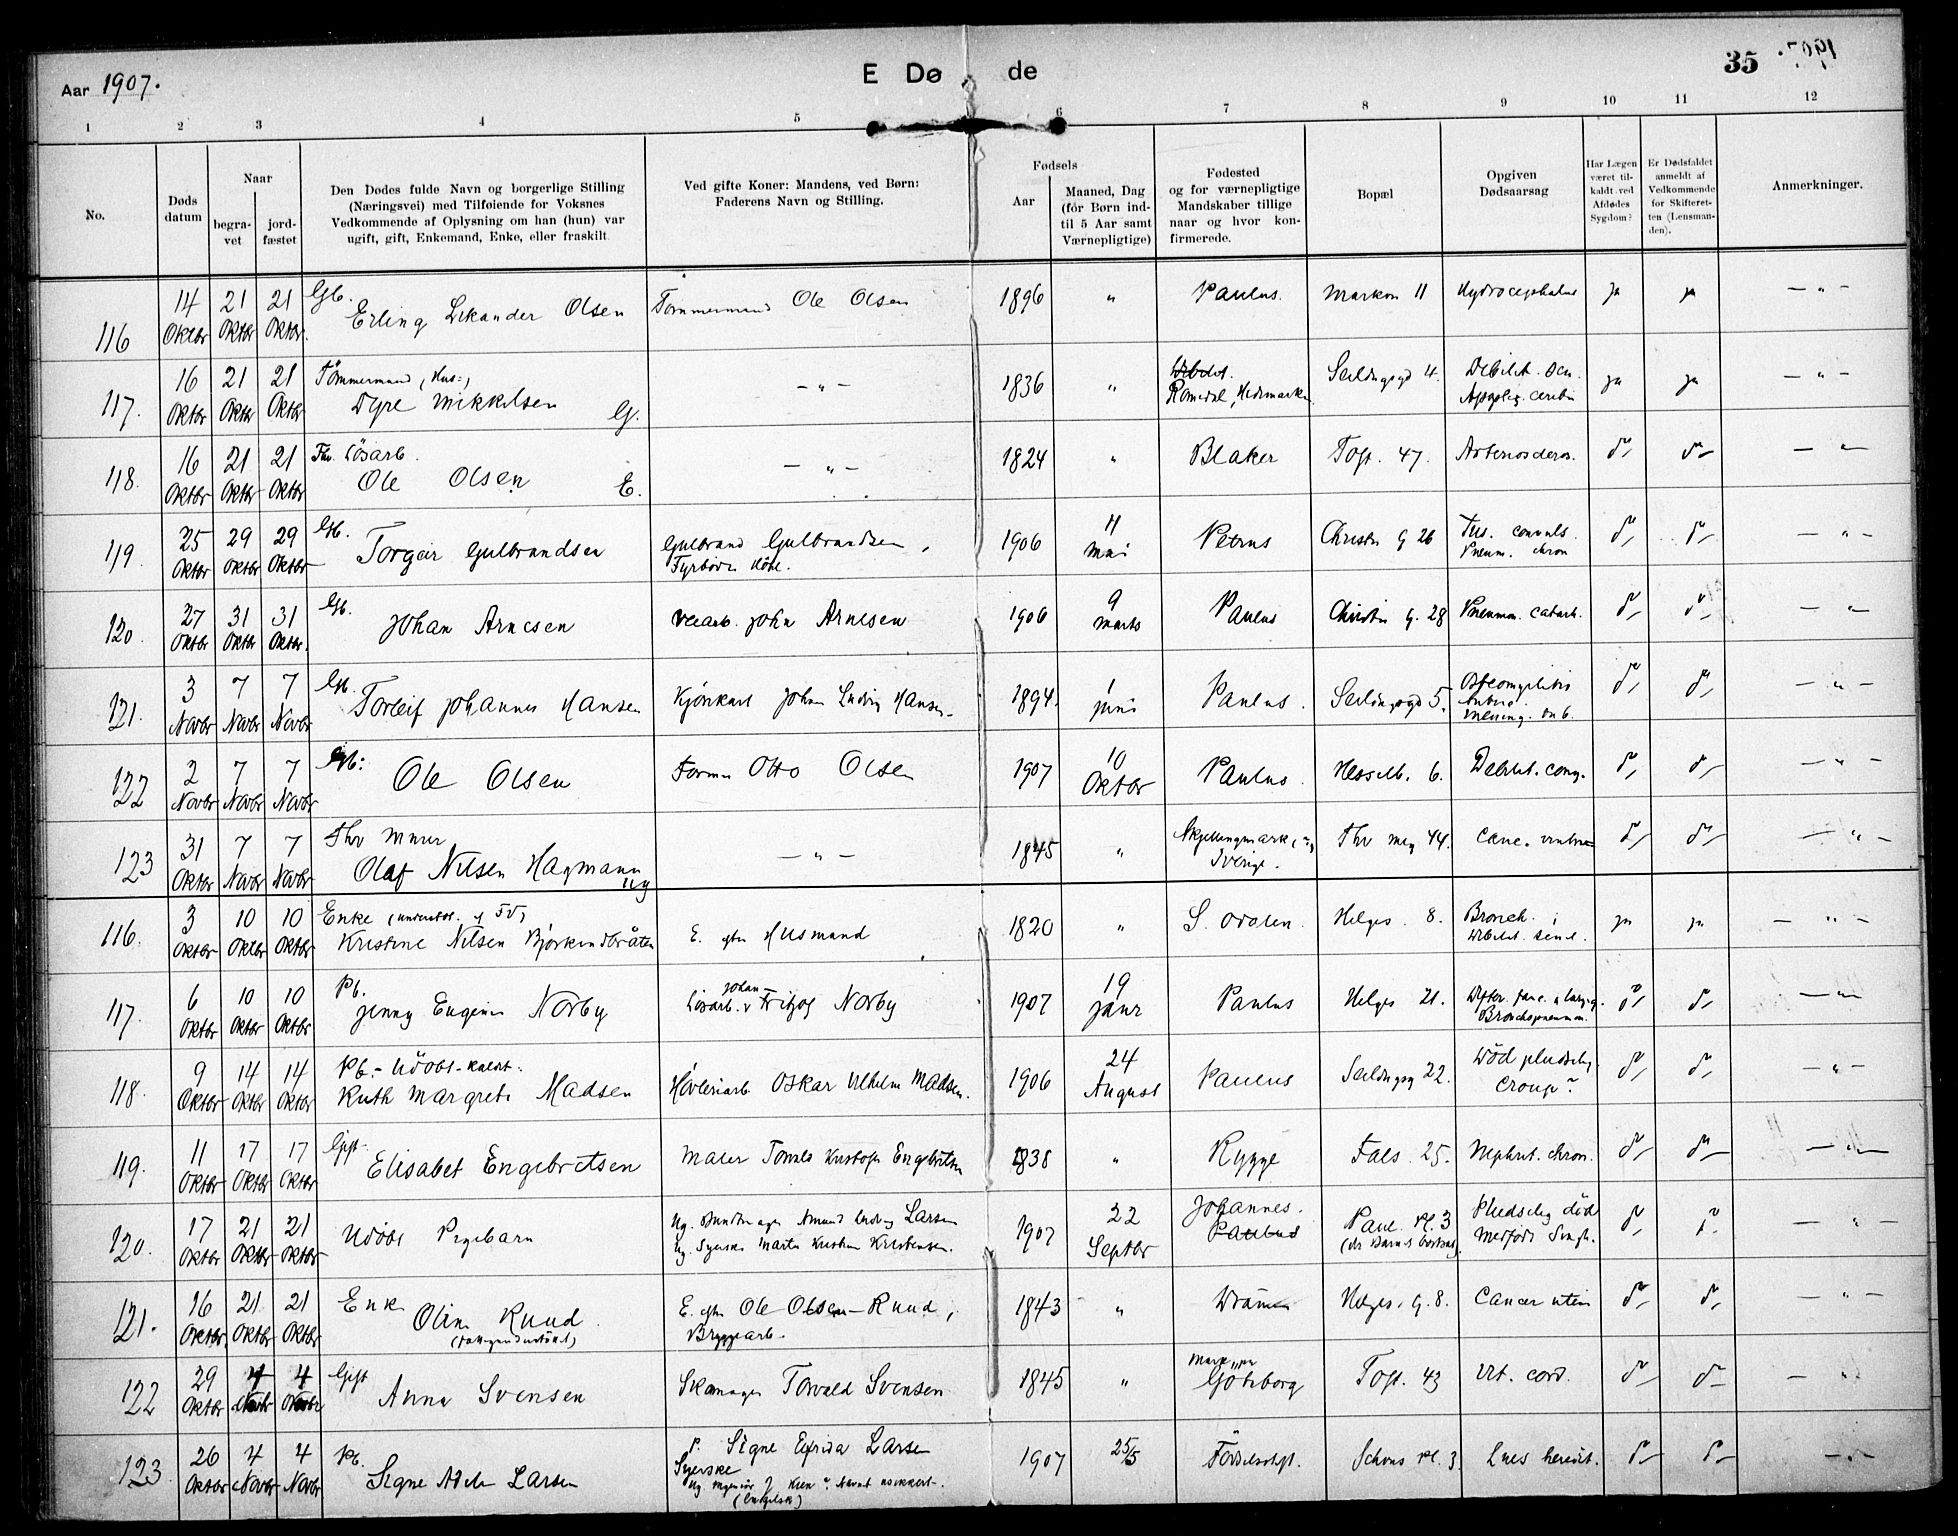 Aar 1907.
E Dø de
35
1907.
1 2 3 4 5 6 7 8 9 10 11 12
No.
Døds datum
Naar
begra-vet
jord-fæstet
Den Dødes fulde Navn og borgerlige Stilling
(Næringsvei) med Tilføiende for Voksnes
Vedkommende af Oplysning om han (hun) var
ugift, gift, Enkemand, Enke, eller fraskilt
Ved gifte Koner: Mandens, ved Børn:
Faderens Navn og Stilling.
Fødsels
Aar
Maaned, Dag
(for Børn ind-
til 5 Aar samt
Værnepligtige)
Fødested
og for værnepligtige
Mandskaber tillige
naar og hvor kon-
firmerede.
Bopæl
Opgiven
Dødsaarsag
Har Lægen
været til-
kaldt ved
Afdødes
Sygdom?
Er Dødsfaldet
anmeldt af
Vedkommende
for Skifteret-
ten (Lensman-
den).
Anmerkninger.
116 14 Oktbr 21 Oktbr 21 Oktbr. Gb. Erling Olsen Tømmermand Ole Olsen 1896 " Paulus. Markvn 11 Hydrocephalus ja ja — " —
117. 16 Oktbr 21 Oktbr 21 Oktbr Tømmermand, (Hus:,) Dyre Mikkelsen G. — " — 1836 " Romedal, Hedemarken Seildugsgd 4. Debilit. sen. Apoplex. cerebri ja ja — " —
118. 16 Oktbr 21 Oktbr 21 Oktbr Fhv. Løsarb. Ole Olsen E. — " — 1824 " Blaker Toft. 47. Arterioscleros. d° d° — " —
119. 25 Oktbr 29 Oktbr 29 Oktbr Gb. Torgeir Gulbrandsen Gulbrand Gulbrandsen, Fyrbøder 1906 11 Mai Petrus Christies G 26 Tus. convuls. Pneum. chron d° d° — " —
120. 27 Oktbr 31 Oktbr 31 Oktbr. Gb. Johan Arnesen Veiarb. John Arnesen 1906 9 Marts Paulus Christies G. 28 Pneumon. catarrh. d° d° — " —
121. 3 Novbr 7 Novbr 7 Novbr Gb. Torleif Johannes Hansen Kjørekarl Johan Ludvig Hansen 1894. 1 Juni Paulus. Seildugsgd 5. Osteomyelitis Mening. d° d° — " —
122 2 Novbr 7 Novbr 7 Novbr Gb: Ole Olsen Former Otto Olsen 1907 10 Oktbr Paulus. Hesselb. 6. Debilit. cong. d° d° — " —
123 31 Oktbr 7 Novbr 7 Novbr Fhv Murer Olaf Nilsen Hagmann ug — " — 1845 " Sverige. Thv mey 44. Canc. ventric d° d° — " —
116. 3 Oktbr 10 Oktbr 10 Oktbr Enke (understøt. af FV) Kristine Nilsen Bjørkendbråten E. efter Husmand 1820 " S. Odalen. Helges. 8. Bronch. Debilit. senil. ja ja — " —
117. 6 Oktbr 10 Oktbr 10 Oktbr Pb. Jenny Eugenie Norby Løsarb. Johan Fritjof Norby 1907 19 Janr Paulus Helges 21. Difter. fauc. Bronchopneumon. d° d° — " —
118. 9 Oktbr 14 Oktbr 14 Oktbr Pb. - Udøbt - kaldt. Ruth Margrete Madsen Høvleriarb Oskar Vilhelm Madsen. 1906 24 August Paulus Seildugsg 22. Død pludselig. Croup? d° d° — " —
119. 11 Oktbr 17 Oktbr 17 Oktbr Gift Elisabet Engebretsen Maler Torvald Kristofer Engebretsen 1838 " Rygge Fals. 25. Nephrit. chron. d° d° — " —
120. 17 Oktbr 21 Oktbr 21 Oktbr Udøbt Pigebarn Ug. Bundtmager Amund Ludvig Larsen Ug. Syerske Marta Kristine Kristensen. 1907 22 Septbr Johannes. Paulus Paul. Pl. 3 (der Barnet bortsat) Pludselig død Medfødt Svagh. d° d° — " —
121. 16 Oktbr. 21 Oktbr 21 Oktbr Enke Oline Ruud. E. efter Ole Olsen-Ruud, Bryggearb. 1843 " Drammen Helges. G. 8. Cancer uteri d° d° — " —
122 29 Oktbr 4 Novbr 4 Novbr Gift Anna Svensen Skomager Torvald Svensen 1845 " Göteborg Toft. 43 Vit. cord. d° d° — "
123 26 Oktbr 4 Novbr 4 Novbr Pb. Signe Adele Larsen P. Signe Elfrida Larsen Syerske Ug Ingeniør Navnet usikkert. (Engelsk) 1907 25/5 Fødselsstft. Schous Pl. 3. Lues heredit. d° d° — " —